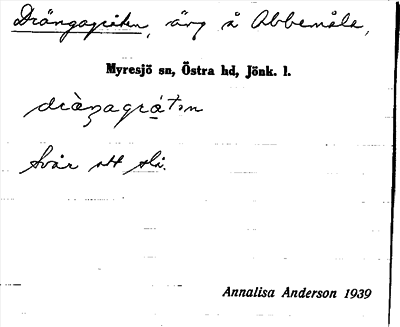 Drängagråten, äng å Abbemåla,
Myresjö sn, Östra hd, Jönk. l.
dräŋagrátən
Svår att slå.
Annalisa Anderson 1939